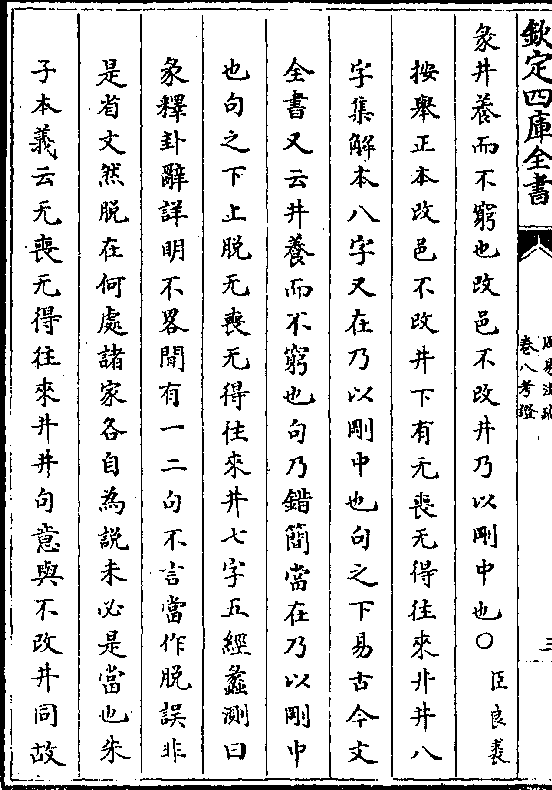 欽定四庫全書
卷八考證
彖井養而不窮也改邑不改井乃以剛中也○臣良裘
按舉正本改邑不改井下有无喪无得往來井井八
字集解本八字又在乃以剛中也句之下易古今文
全書又云井養而不窮也句乃錯簡當在乃以剛中
也句之下上脱无喪无得往來井七字五經蠡測曰
彖釋卦辭詳明不畧間有一二句不言當作脱誤非
是省文然脱在何處諸家各自為説未必是當也朱
子本義云无喪无得往來井井句意與不改井同故